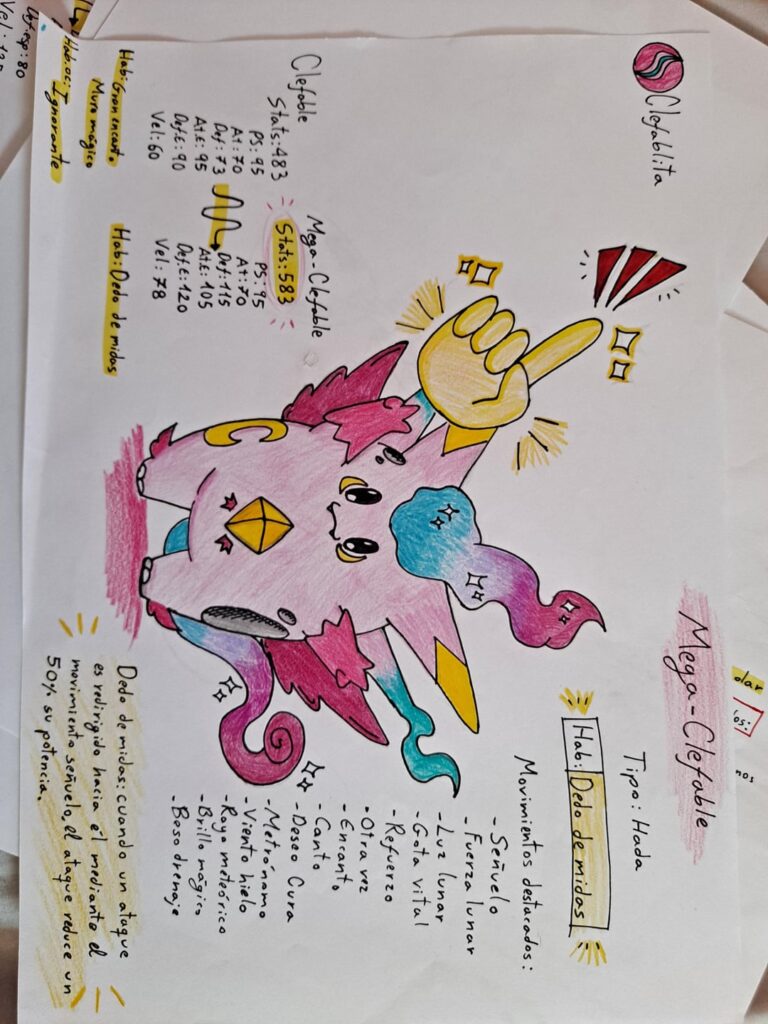 Mega-Clefable
Clefablita
Tipo: Hada
Hab: Dedo de midas
Movimientos destacados:
- Señuelo
- Fuerza lunar
- Luz lunar
- Gota vital
- Refuerzo
- Otra vez
- Encanto
- Canto
- Deseo Cura
- Metrónomo
- Viento hielo
- Rayo meteórico
- Brillo mágico
- Beso drenaje
Clefable
Stats: 483
PS: 95
At: 70
Def: 73
At.E: 95
Def.E: 90
Vel: 60
Hab: Gran encanto
Muro mágico
Hab.oc: Ignorante
Mega-Clefable
Stats: 583
PS: 95
At: 70
Def: 115
At.E: 105
Def.E: 120
Vel: 78
Hab: Dedo de midas
Dedo de midas: cuando un ataque
es redirigido hacia él mediante el
movimiento señuelo, el ataque reduce un
50% su potencia.
dar